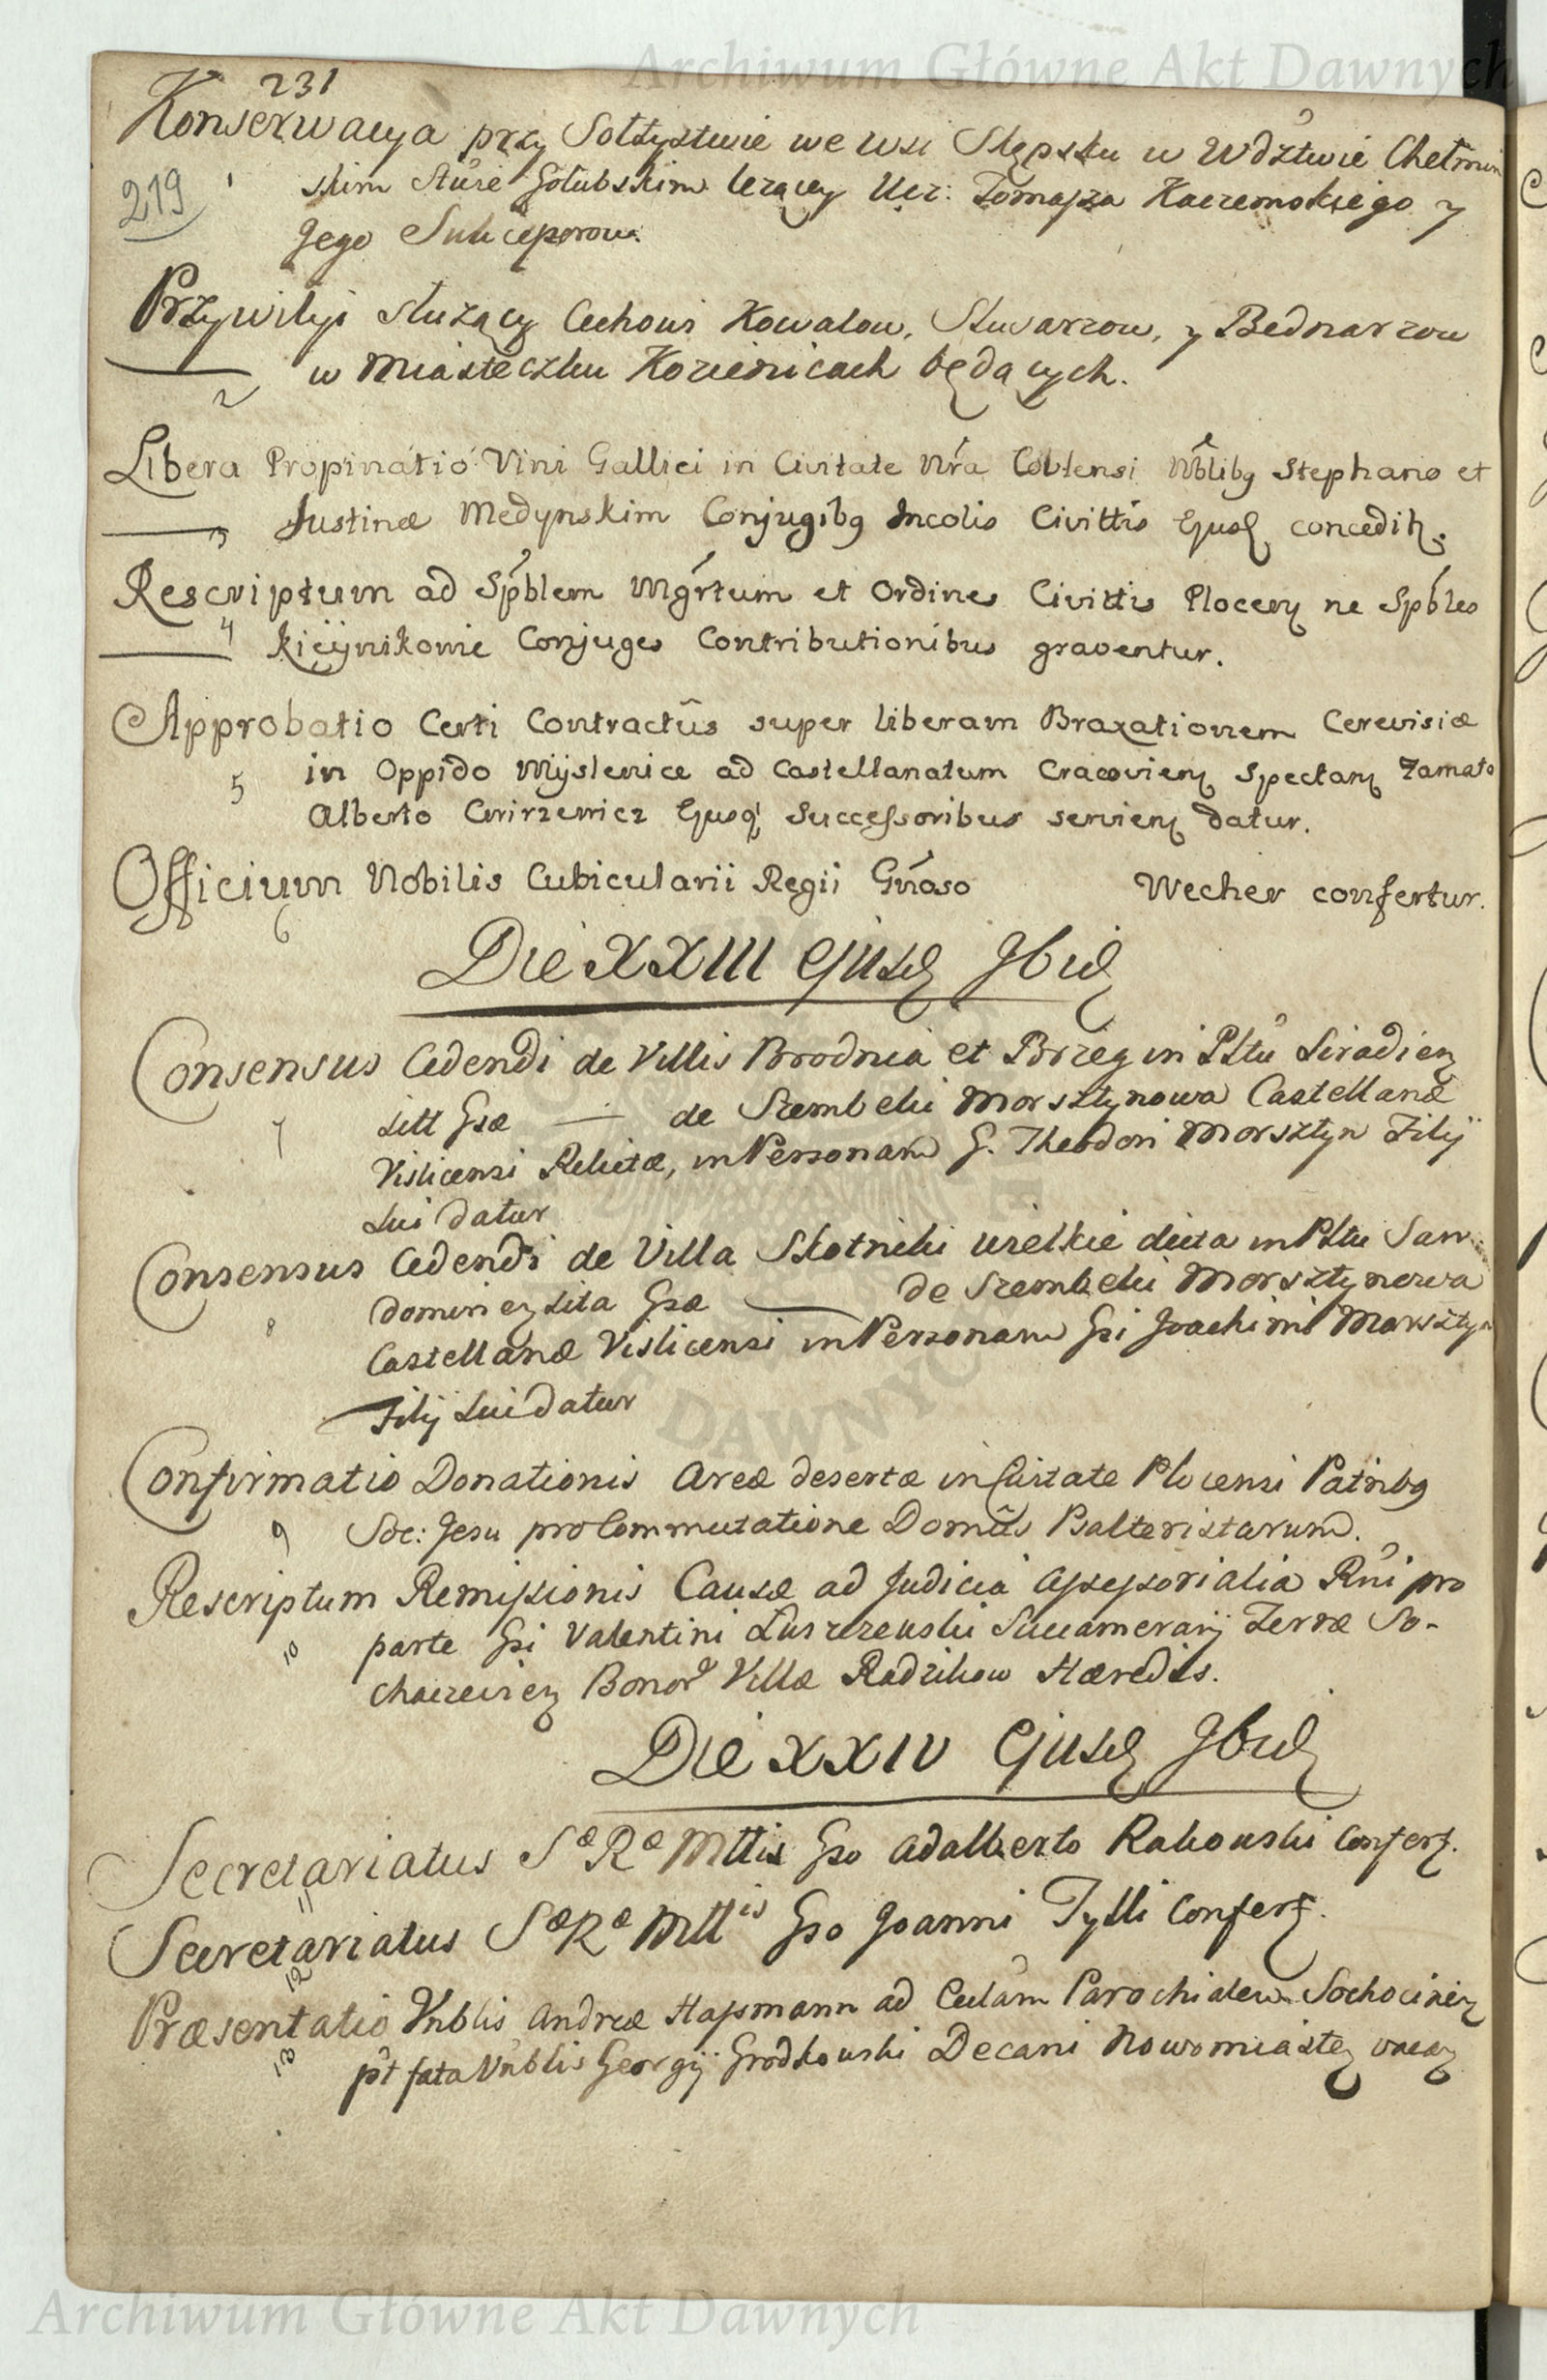 Archiwum Główne Akt Dawnych
231
Konserwacya przy Sołtystwie we Wsi Slępsku w Wdztwie Chełmin
219 1 skim Stwie Gołubskim lezący Ucz: Tomasza Kaczemskiego y
Jego Sukcessorow.
Przywiley służący Cechowi Kowalow, Slusarzow, y Bednarzow
2 w Miasteczku Kozienicach będących.
Libera Propinatio Vini Gallici in Civitate Nra Coblensi Nblibq Stephano et
3 Justinæ Medynskim Conjugibq Incolis Civittis Ejusd concedit.
Rescriptum ad Spblem Mgrtum et Ordines Civittis Plocen ne Spbles
4 Kicijnikowie Conjuges Contributionibus graventur.
Approbatio Certi Contractûs super liberam Braxationem Cerevisiæ
5 in Oppido Myslenice ad Castellanatum Cracovien Spectan Famato
Alberto Cwirzewicz Ejusq Successoribus servien datur.
Officium Nobilis Cubicularii Regii Gnoso Wecher confertur.
6
Die XXIII Ejusd Ibid
Consensus Cedendi de Villis Brodnia et Brzeg in Pltu Siradien
7 sitt Gsæ — de Szembeki Morsztynowa Castellanæ
Vislicensi Relictæ, in Personam G. Theodori Morsztyn Filij
Sui datur
Consensus Cedendi de Villa Skotniki wielkie dicta in Pltu San
8 domirien sita Gsæ — de Szembeki Morsztynowa
Castellanæ Vislicensi in Personam Gsi Joachimi Morsztyn
Filij Sui datur
Confirmatio Donationis Areæ desertæ in Civitate Plocensi Patribq
9 Soc: Jesu pro Commutatione Domûs Psalteristarum.
Rescriptum Remissionis Causæ ad Judicia Assessorialia Rni pro
10 parte Gsi Valentini Łuszczewski Succamerarij Terræ So-
chaczevien Bonor Villæ Radzikow Hæredis.
Die XXIV Ejusd Ibid
Secretariatus Sæ Ræ Mttis Gso Adalberto Rakowski Confert.
11
Secretariatus Sæ Ræ Mttis Gso Joanni Tylli Confert.
12
Præsentatio Vnblis Andreæ Hassmann ad Eccleam Parochialem Sochocinien
13 pt fata Vnblis Georgij Grodkowski Decani Nowomiasten vacan
Archiwum Główne Akt Dawnych